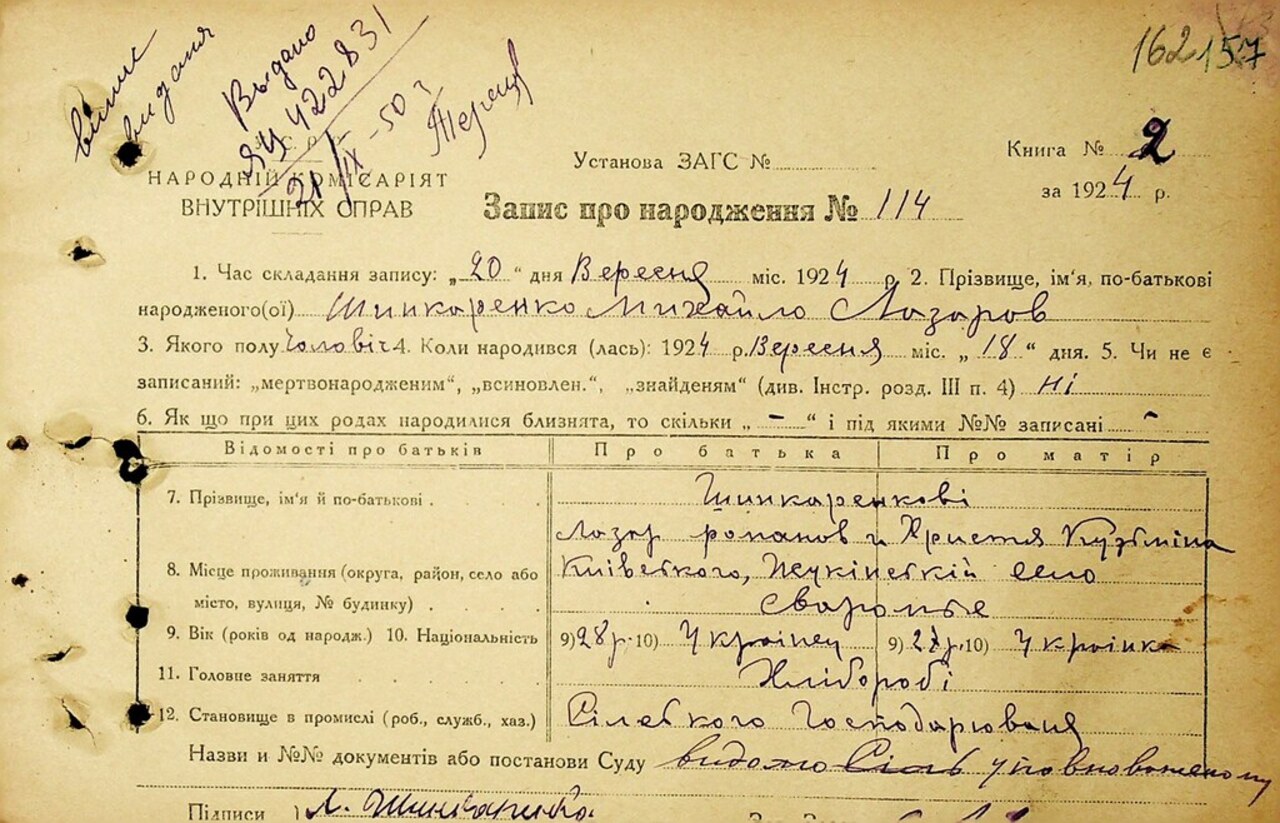 випис
видання
Выдано
ЯЧ 422831
21/IX-50 г
162 157
У.С.Р.Р.
НАРОДНІЙ КОМІСАРІЯТ
ВНУТРІШНІХ СПРАВ
Установа ЗАГС №
Книга № 2
за 1924 р.
Запис про народження № 114
1. Час складання запису: „20" дня Вересня міс. 1924 р. 2. Прізвище, ім'я, по-батькові
народженого(ої) Шинкаренко Михайло Лазаров
3. Якого полу Чоловіч 4. Коли народився (лась): 1924 р. Вересня міс. „18" дня. 5. Чи не є
записаний: „мертвонародженим", „всиновлен.", „знайденям" (див. Інстр. розд. III п. 4) Ні
6. Як що при цих родах народилися близнята, то скільки „-" і під якими №№ записані -
Відомості про батьків Про батька Про матір
7. Прізвище, ім'я й по-батькові . Шинкаренкові
Лазар романов и Христя Кузьміна
8. Місце проживання (округа, район, село або Київського, село
місто, вулиця, № будинку) . . . . Сваромье
9. Вік (років од народж.) 10. Національність 9) 28 р. 10) Українец 9) 27 р. 10) Українка
11. Головне заняття Хлібороби
12. Становище в промислі (роб., служб., хаз.) Сілського Господарюваня
Назви и №№ документів або постанови Суду видомо Сіль уповноваженому
Підписи Л. Шинкаренко